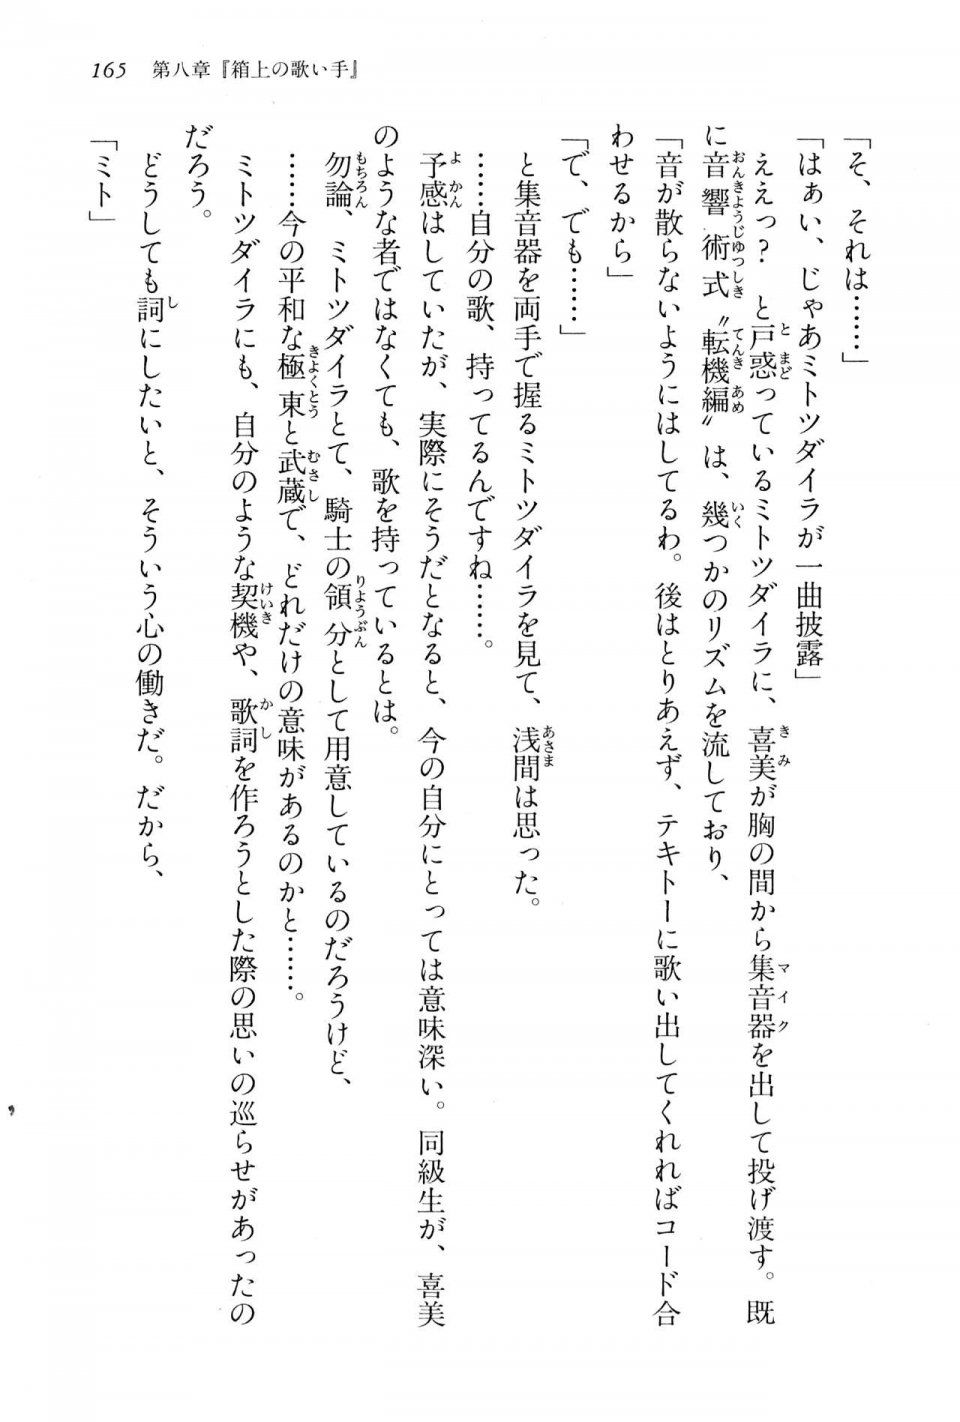 165　第八章『箱上の歌い手』
「そ、それは……」
「はぁい、じゃあミトツダイラが一曲披露」
　ええっ？　と戸惑っているミトツダイラに、喜美が胸の間から集音器を出して投げ渡す。既
に音響術式〝転機編〟は、幾つかのリズムを流しており、
「音が散らないようにはしてるわ。後はとりあえず、テキトーに歌い出してくれればコード合
わせるから」
「で、でも……」
　と集音器を両手で握るミトツダイラを見て、浅間は思った。
　……自分の歌、持ってるんですね……。
　予感はしていたが、実際にそうだとなると、今の自分にとっては意味深い。同級生が、喜美
のような者ではなくても、歌を持っているとは。
　勿論、ミトツダイラとて、騎士の領分として用意しているのだろうけど、
　……今の平和な極東と武蔵で、どれだけの意味があるのかと……。
　ミトツダイラにも、自分のような契機や、歌詞を作ろうとした際の思いの巡らせがあったの
だろう。
　どうしても詞にしたいと、そういう心の働きだ。だから、
「ミト」